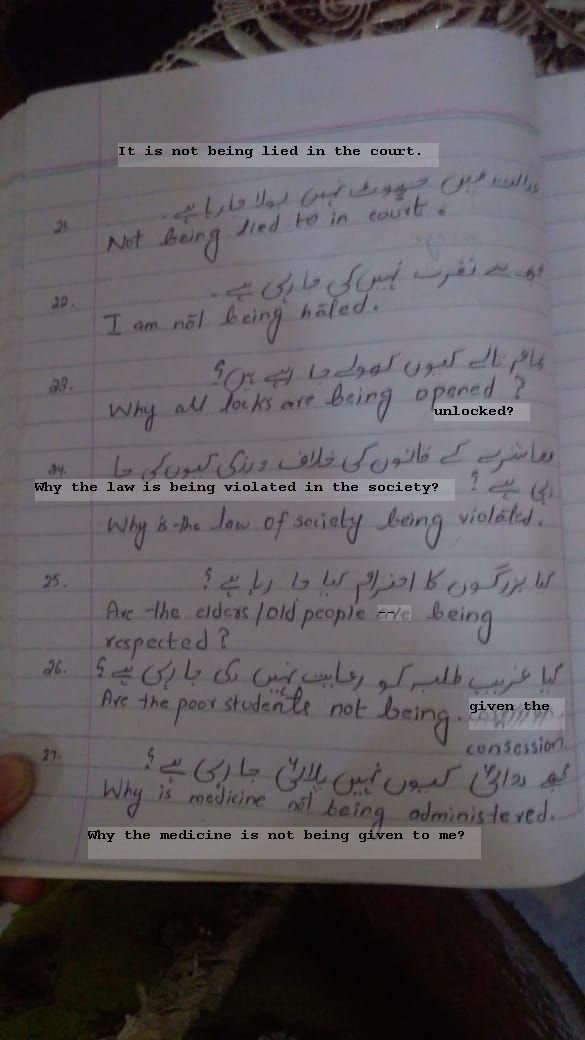 It is not being lied in the court.
عدالت میں جھوٹ نہیں بولا جا رہا ہے۔
21. Not being lied to in court.
مجھ سے نفرت نہیں کی جا رہی ہے۔
22. I am not being hated.
تمام تالے کیوں کھولے جا رہے ہیں؟
23. Why all locks are being opened ?
unlocked?
24. معاشرے کے قانون کی خلاف ورزی کیوں کی جا
رہی ہے ؟
Why the law is being violated in the society?
Why is the law of society being violated.
25. کیا بزرگوں کا احترام کیا جا رہا ہے ؟
Are the elders/old people --- being
respected?
26. کیا غریب طلبہ کو رعایت نہیں دی جا رہی ہے ؟
Are the poor students not being. given the
consession.
27. مجھے دوائی کیوں نہیں پلائی جا رہی ہے ؟
Why is medicine not being administered.
Why the medicine is not being given to me?